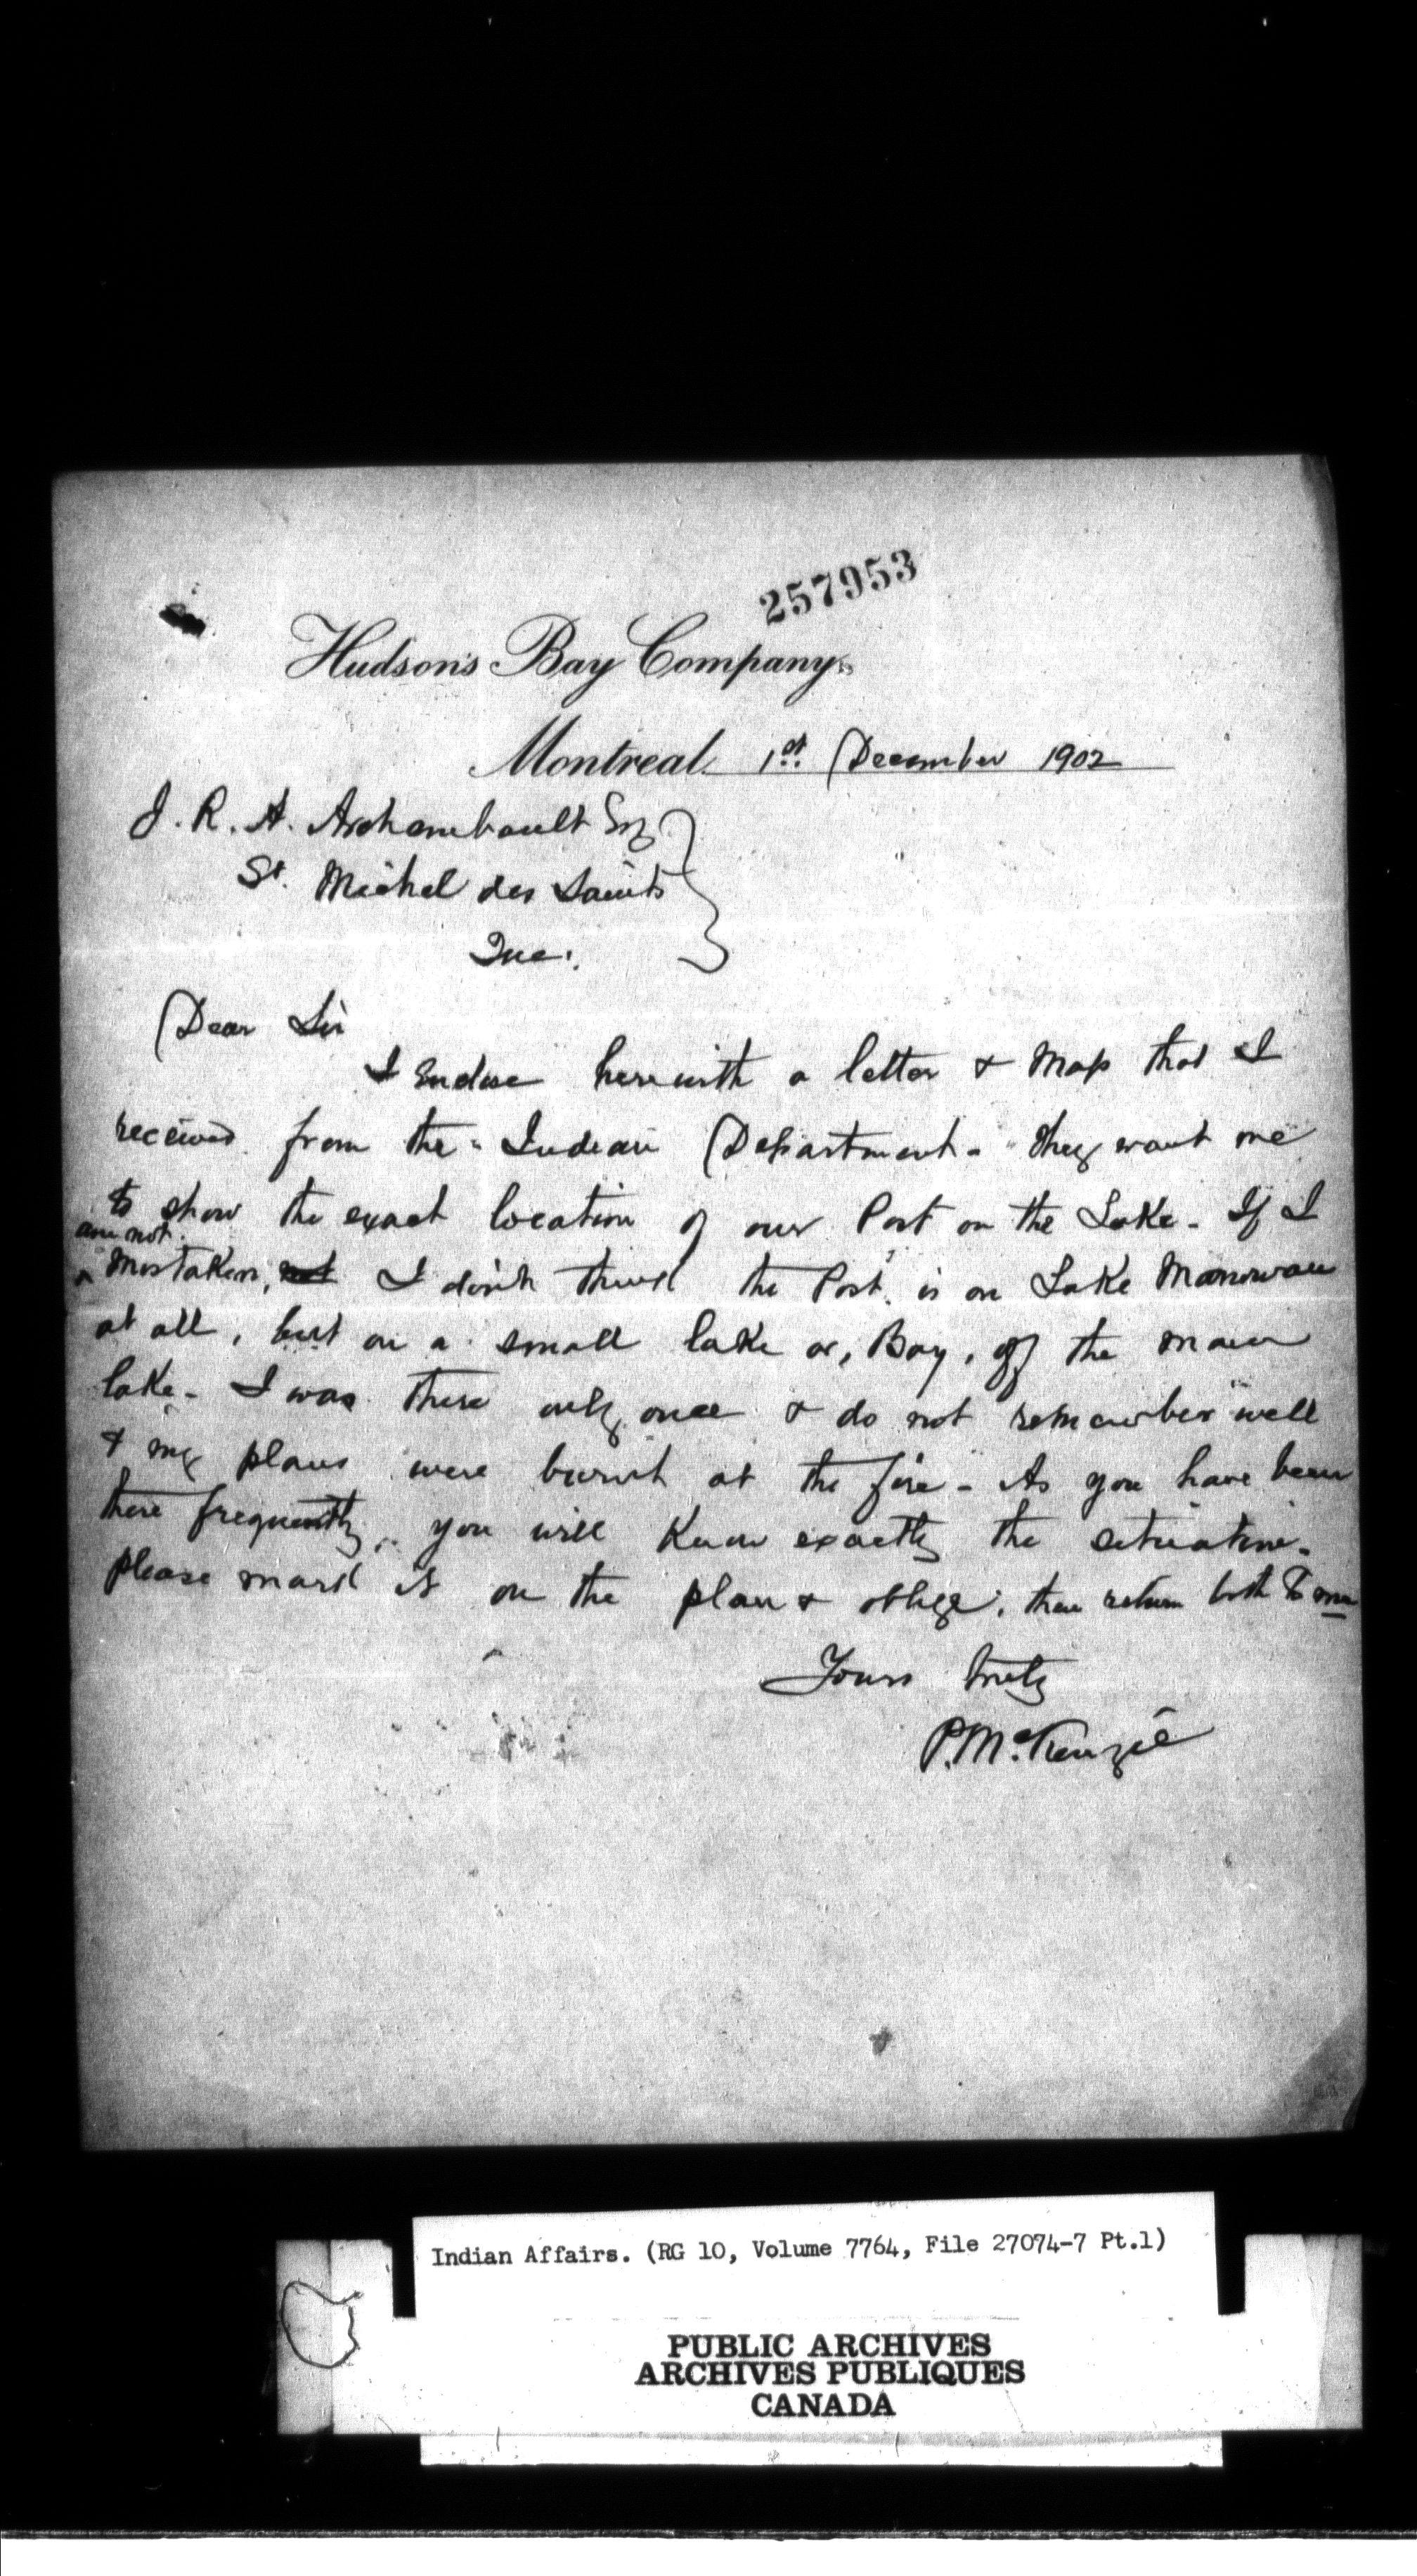 257953
Hudson's Bay Company.
Montreal 1st. December 1902
J. R. A. Archambault Esq
St. Michel des Saints
Que.
Dear Sir
I Enclose herewith a letter & Map that I
received from the Indian Department - They want me
to show the exact location of our Post on the Lake - If I
am not
^ Mistaken, not I don't think the Post is on Lake Manowan
at all, but on a small lake or, Bay, off the main
lake - I was there only once & do not remember well
& my plans were burnt at the fire - As you have been
there frequently, you will Know exactly the situation.
please mark it on the plan & oblige, then return both to me
Yours truly
P. McKenzie
Indian Affairs. (RG 10, Volume 7764, File 27074-7 Pt.1)
PUBLIC ARCHIVES
ARCHIVES PUBLIQUES
CANADA